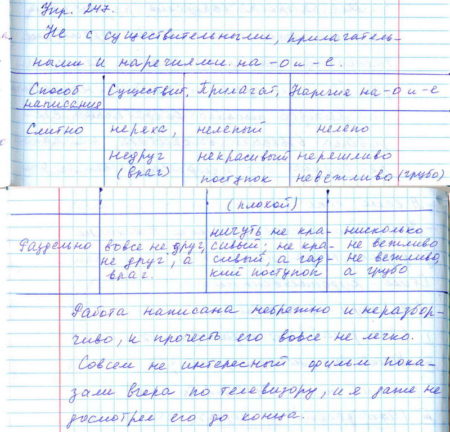 Упр. 247.
Не с существительными, прилагатель-
ными и наречиями на -о и -е.
Способ написания Существит. Прилагат. Наречие на -о и -е
Слитно неряха, нелепый нелепо
недруг некрасивый неряшливо
(враг) поступок невежливо (грубо)
(плохой)
Раздельно вовсе не друг, ничуть не кра- нисколько
не друг, а сивый; не кра- не вежливо
враг. сивый, а гад- не вежливо,
кий поступок а грубо
Работа написана небрежно и неразбор-
чиво, и прочесть его вовсе не легко.
Совсем не интересный фильм пока-
зали вчера по телевизору, и я даже не
досмотрел его до конца.